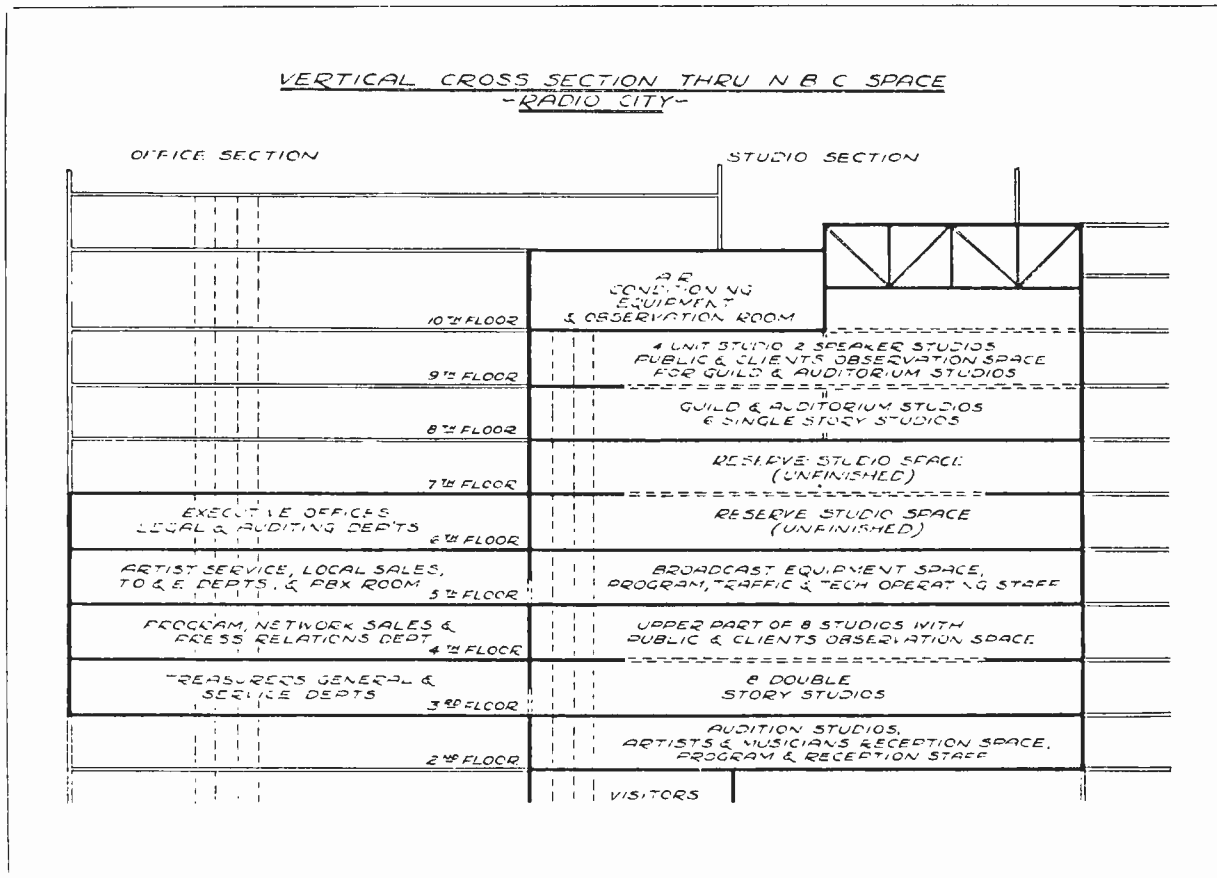 VERTICAL CROSS SECTION THRU N B C SPACE
-RADIO CITY-
OFFICE SECTION
STUDIO SECTION
AIR
CONDITIONING
EQUIPMENT
& OBSERVATION ROOM
10TH FLOOR
4 UNIT STUDIO 2 SPEAKER STUDIOS
PUBLIC & CLIENTS OBSERVATION SPACE
FOR GUILD & AUDITORIUM STUDIOS
9TH FLOOR
GUILD & AUDITORIUM STUDIOS
6 SINGLE STORY STUDIOS
8TH FLOOR
RESERVE STUDIO SPACE
(UNFINISHED)
7TH FLOOR
EXECUTIVE OFFICES
LEGAL & AUDITING DEPTS
6TH FLOOR
RESERVE STUDIO SPACE
(UNFINISHED)
ARTIST SERVICE, LOCAL SALES,
TO & E DEPTS, & PBX ROOM
5TH FLOOR
BROADCAST EQUIPMENT SPACE,
PROGRAM, TRAFFIC & TECH OPERATING STAFF
PROGRAM, NETWORK SALES &
PRESS RELATIONS DEPT
4TH FLOOR
UPPER PART OF 8 STUDIOS WITH
PUBLIC & CLIENTS OBSERVATION SPACE
TREASURERS GENERAL &
SERVICE DEPTS
3RD FLOOR
8 DOUBLE
STORY STUDIOS
AUDITION STUDIOS,
ARTISTS & MUSICIANS RECEPTION SPACE,
PROGRAM & RECEPTION STAFF
2ND FLOOR
VISITORS